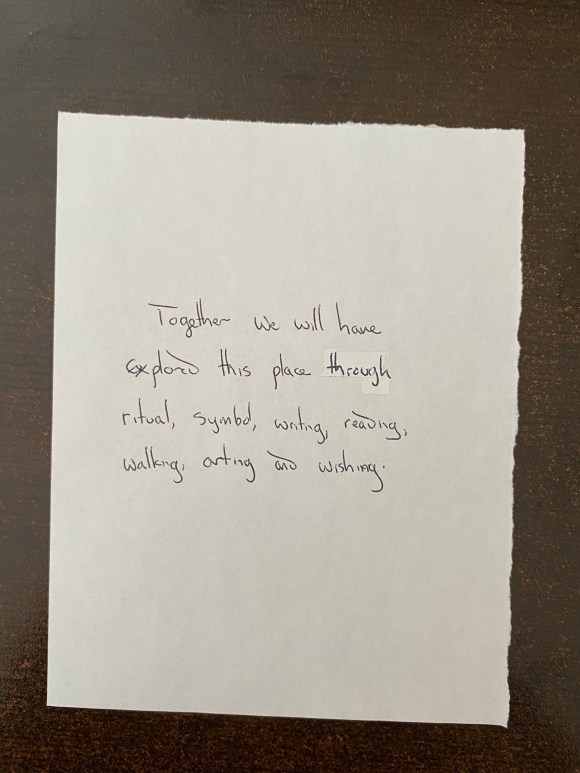 Together we will have
explored this place through
ritual, symbol, writing, reading,
walking, arting and wishing.